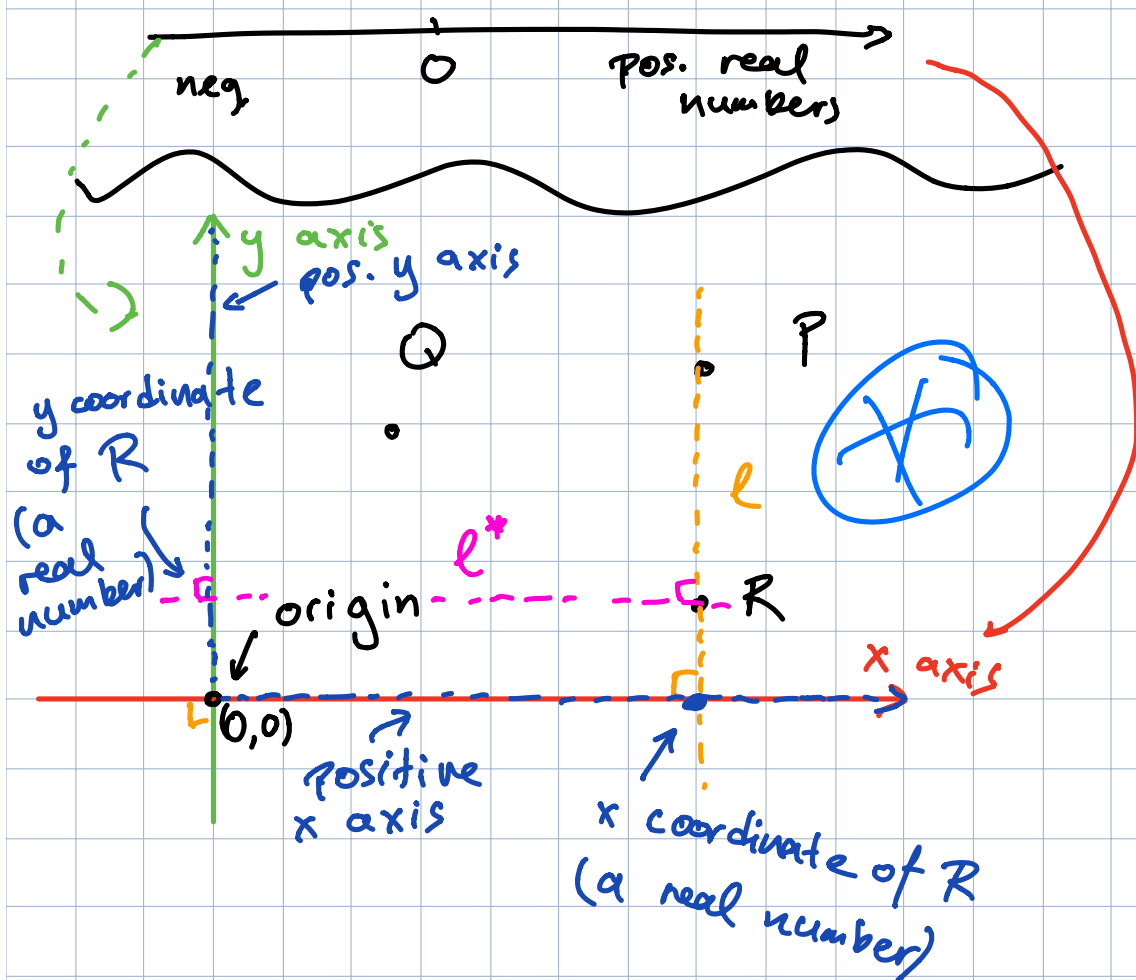 0
neg
pos. real
numbers
y axis
pos. y axis
Q
P
y coordinate
of R
(a
real
number)
l
l*
origin
R
x axis
(0,0)
positive
x axis
x coordinate of R
(a real number)